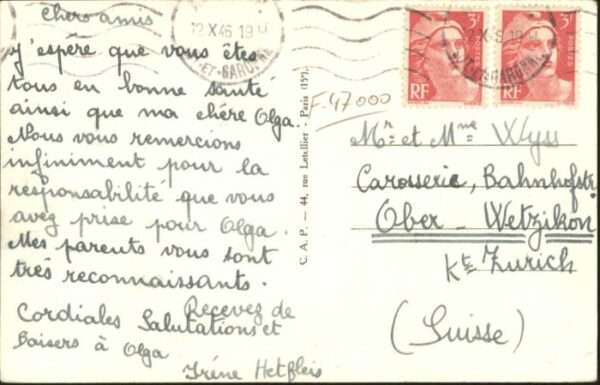 Chers amis
J'espère que vous êtes
tous en bonne santé
ainsi que ma chère Olga.
Nous vous remercions
infiniment pour la
responsabilité que vous
avez prise pour Olga.
Mes parents vous sont
très reconnaissants.
Recevez de
Cordiales Salutations et
baisers à Olga
Irène
C. A. P. — 44, rue Letellier - Paris (15e).
12 X 46 19 H
ET-GARONNE
3F
RF
3F
RF
F.47000
Mr et Mme Wyss
Carosserie, Bahnhofstr.
Ober - Wetzikon
Kt Zurich
(Suisse)